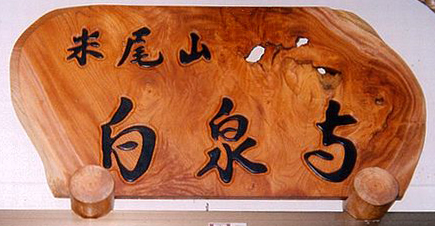 米尾山
白泉寺